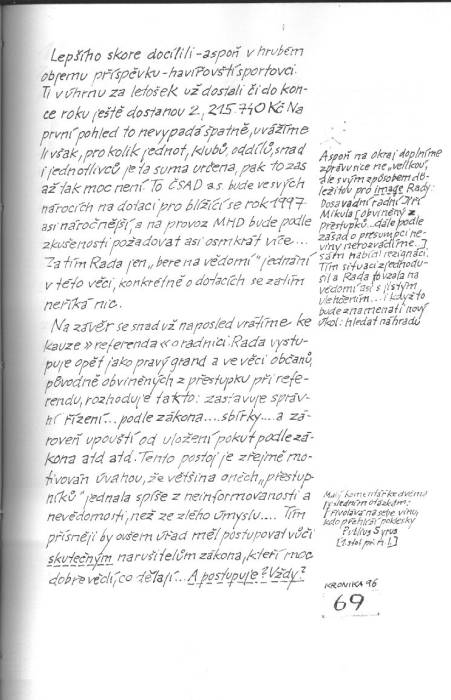 Lepšího skore docílili - aspoň v hrubém
objemu příspěvku - havířovští sportovci.
Ti v úhrnu za letošek už dostali či do kon-
ce roku ještě dostanou 2,215.740 Kč. Na
první pohled to nevypadá špatně, uvážíme
li však, pro kolik jednot, klubů, oddílů, snad
i jednotlivců je ta suma určena, pak to zas
až tak moc není. To ČSAD a.s. bude ve svých
nárocích na dotaci pro bližící se rok 1997
asi náročnější a na provoz MHD bude podle
zkušeností požadovat asi osmkrát více....
Zatím Rada jen „bere na vědomí" jednání
v této věci, konkrétně o dotacích se zatím
neříká nic.
Na závěr se snad už naposled vrátíme ke
kauze » referenda « o radnici: Rada vystu-
puje opět jako pravý grand a ve věci občanů,
původně obviněných z přestupku při refe-
rendu, rozhoduje takto: zastavuje správ-
ní řízení... podle zákona... sbírky... a zá-
roveň upouští od uložení pokut podle zá-
kona atd atd. Tento postoj je zřejmě mo-
tivován úvahou, že většina oněch „přestup-
níků" jednala spíše z neinformovanosti a
nevědomosti, než ze zlého úmyslu.... Tím
přísněji by ovšem úřad měl postupovat vůči
skutečným narušitelům zákona, kteří moc
dobře vědí, co dělají... A postupuje? Vždy?
Aspoň na okraj doplníme
zprávu sice ne „velkou",
ale svým způsobem dů-
ležitou pro image Rady:
Dosavadní radní Jiří
Mikula, obviněný z
přestupků... dále podle
zásad o presumpci ne-
viny nerozvádíme...
sám nabídl rezignaci.
Tím situaci zjednodu-
šil a Rada to vzala na
vědomí asi s jistým
ulehčením... i když to
bude znamenat nový
úkol: hledat náhradu
Malý komentář ke dvěma
posledním otázkám:
Přivolává na sebe vinu,
kdo přehlíží poklesky
Publius Syrus
[1 stol. př. n. l.]
KRONIKA 96
69